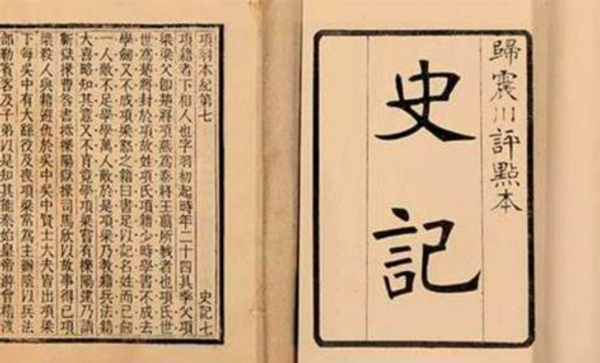 歸震川評點本
史記
項羽本紀第七 史記七
項籍者下相人也字羽初起時年二十四其季父項
梁梁父即楚將項燕為秦將王翦所戮者也項氏世
世為楚將封於項故姓項氏項籍少時學書不成去
學劒又不成項梁怒之籍曰書足以記名姓而已劒
一人敵不足學學萬人敵於是項梁乃教籍兵法籍
大喜略知其意又不肯竟學項梁嘗有櫟陽逮乃請
蘄獄掾曹咎書抵櫟陽獄掾司馬欣以故事得已項
梁殺人與籍避仇於吳中吳中賢士大夫皆出項梁
下每吳中有大繇役及喪項梁常為主辦陰以兵法
部勒賓客及子弟以是知其能秦始皇帝游會稽渡